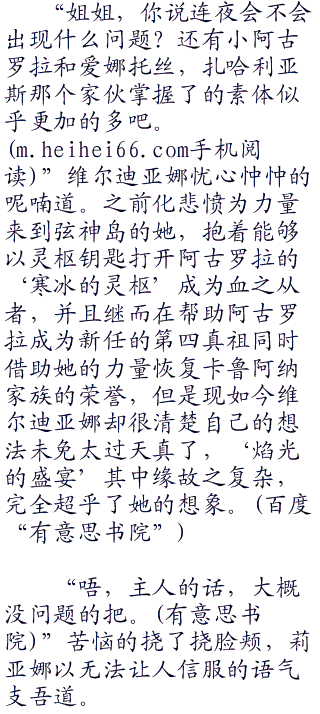 “姐姐，你说连夜会不会
出现什么问题？还有小阿古
罗拉和爱娜托丝，扎哈利亚
斯那个家伙掌握了的素体似
乎更加的多吧。
(m.heihei66.com手机阅
读)”维尔迪亚娜忧心忡忡的
呢喃道。之前化悲愤为力量
来到弦神岛的她，抱着能够
以灵柩钥匙打开阿古罗拉的
‘寒冰的灵柩’成为血之从
者，并且继而在帮助阿古罗
拉成为新任的第四真祖同时
借助她的力量恢复卡鲁阿纳
家族的荣誉，但是现如今维
尔迪亚娜却很清楚自己的想
法未免太过天真了，‘焰光
的盛宴’其中缘故之复杂，
完全超乎了她的想象。(百度
“有意思书院”)
“唔，主人的话，大概
没问题的把。(有意思书
院)”苦恼的挠了挠脸颊，莉
亚娜以无法让人信服的语气
支吾道。